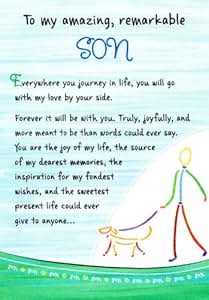 To my amazing, remarkable
SON
Everywhere you journey in life, you will go
with my love by your side.
Forever it will be with you. Truly, joyfully, and
more meant to be than words could ever say.
You are the joy of my life, the source
of my dearest memories, the
inspiration for my fondest
wishes, and the sweetest
present life could ever
give to anyone...